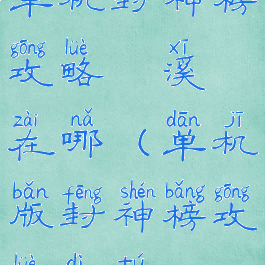 单机封神榜
gōng lüè xī
攻略 溪
zài nǎ dān jī
在哪（单机
bǎn fēng shén bǎng gōng
版封神榜攻
lüè dì tú